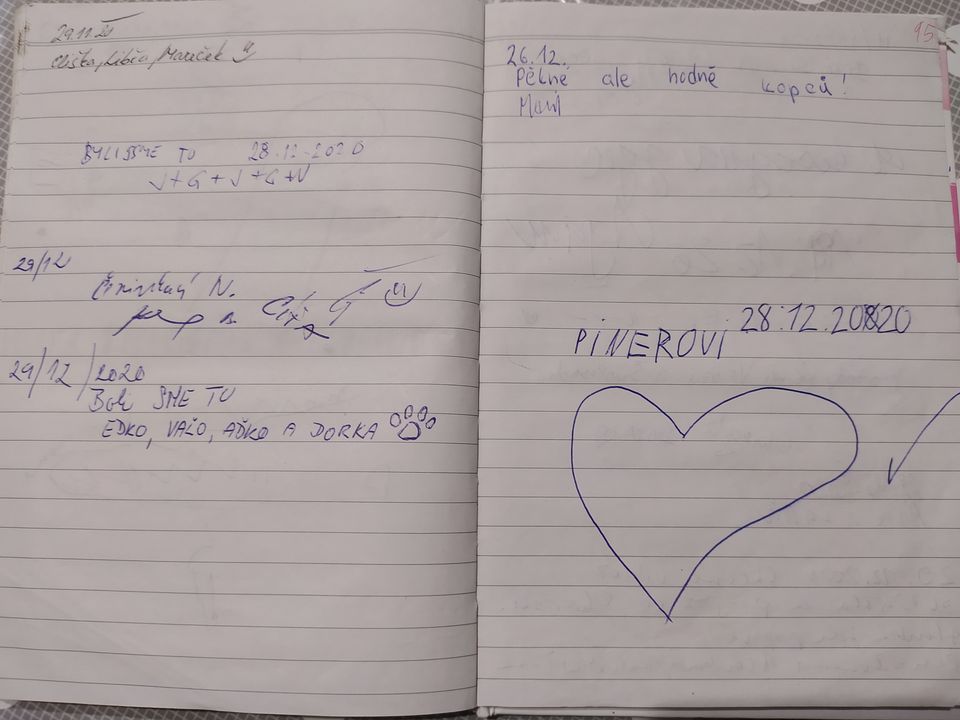 29.11.
Eliška, Libča, Mareček
BYLI JSME TU 28.12.2020
J+G+J+G+N
29/12
N.
29/12/2020
Boli SME TU
EDKO, VAĽO, AĎKO A DORKA
15
26.12.
Pěkné ale hodně kopců!
PiNEROVi 28.12.2020